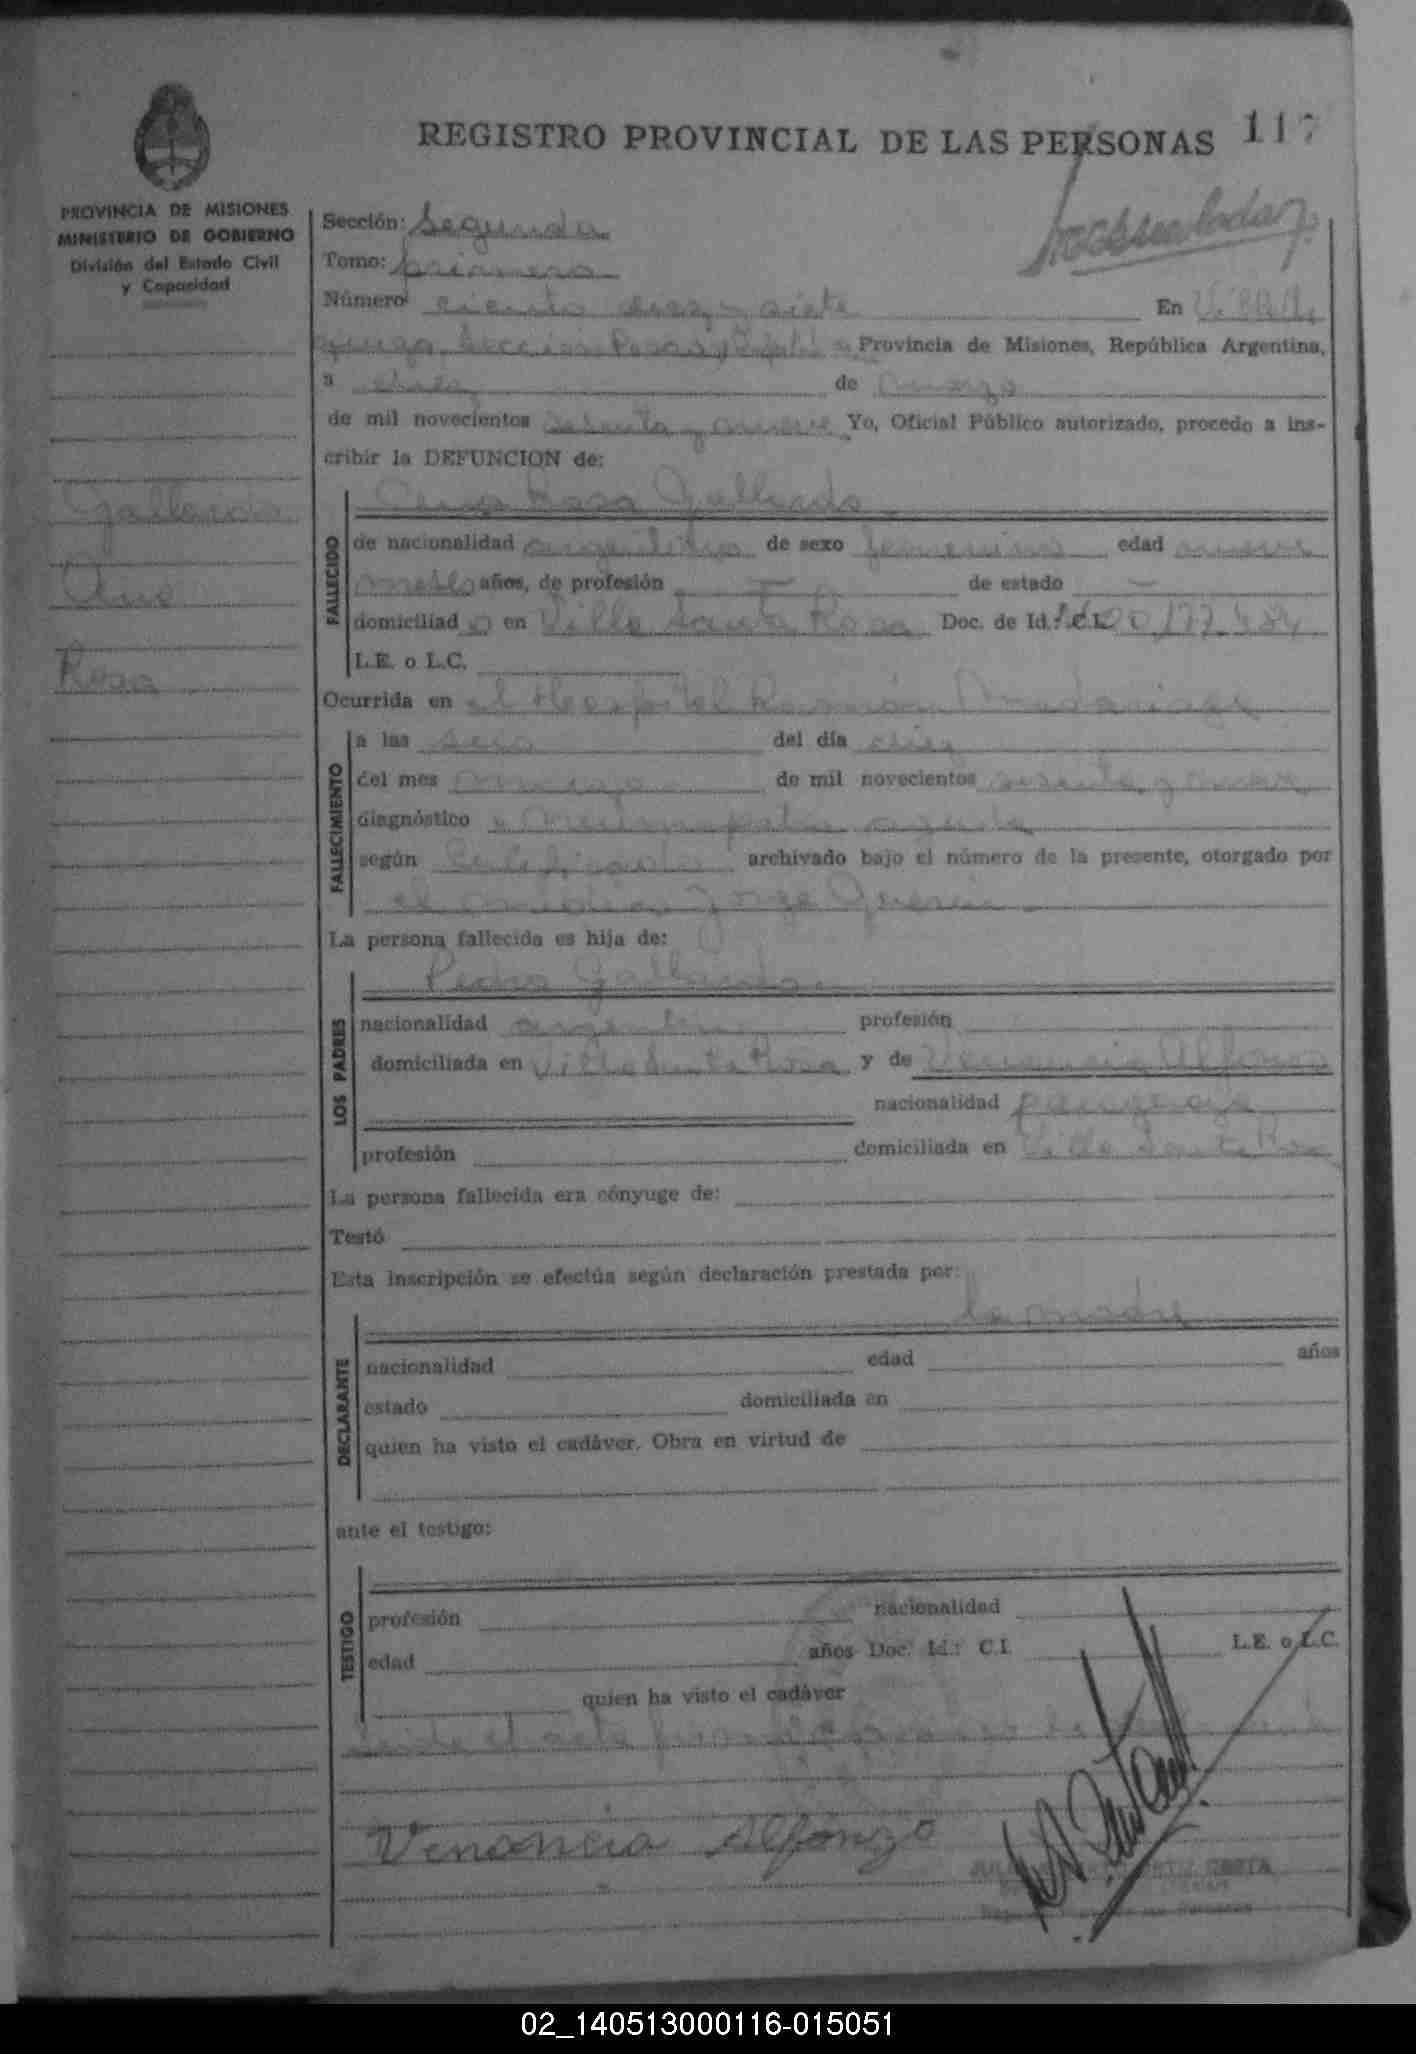 REGISTRO PROVINCIAL DE LAS PERSONAS 117
PROVINCIA DE MISIONES
MINISTERIO DE GOBIERNO
División del Estado Civil
y Capacidad
Gallardo
Ana
Rosa
Sección: Segunda
Tomo: primero
Número: ciento diez y siete En Villa
Sección Provincia de Misiones, República Argentina,
a diez de marzo
de mil novecientos sesenta y nueve Yo, Oficial Público autorizado, procedo a ins-
cribir la DEFUNCION de:
Ana Rosa Gallardo
FALLECIDO
de nacionalidad argentina de sexo femenino edad nueve
meses años, de profesión — de estado —
domiciliado en Villa Santa Rosa Doc. de Id.: C.I.
L.E. o L.C.
Ocurrida en el Hospital Ramón Madariaga
FALLECIMIENTO
a las seis del día diez
del mes marzo de mil novecientos sesenta y nueve
diagnóstico aguda
según certificado archivado bajo el número de la presente, otorgado por
el Jorge
La persona fallecida es hija de:
Pedro Gallardo
LOS PADRES
nacionalidad argentino profesión
domiciliada en Villa Santa Rosa y de Venancia Alfonzo
nacionalidad paraguaya
profesión domiciliada en Villa Santa Rosa
La persona fallecida era cónyuge de:
Testó
Esta inscripción se efectúa según declaración prestada por:
la madre
DECLARANTE
nacionalidad edad años
estado domiciliada en
quien ha visto el cadáver. Obra en virtud de
ante el testigo:
TESTIGO
profesión nacionalidad
edad años Doc. Id.: C.I. L.E. o L.C.
quien ha visto el cadáver
el acta
Venancia Alfonzo
02_140513000116-015051